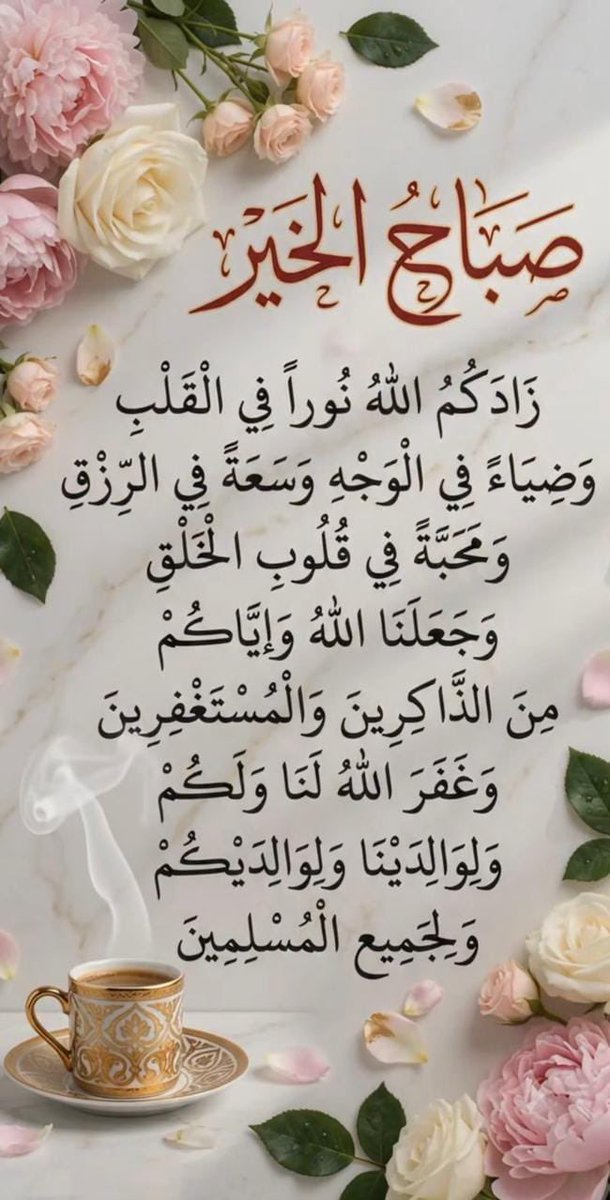 صَبَاحُ الخَيْر
زَادَكُمُ اللهُ نُوراً فِي الْقَلْبِ
وَضِيَاءً فِي الْوَجْهِ وَسَعَةً فِي الرِّزْقِ
وَمَحَبَّةً فِي قُلُوبِ الْخَلْقِ
وَجَعَلَنَا اللهُ وَإِيَّاكُمْ
مِنَ الذَّاكِرِينَ وَالْمُسْتَغْفِرِينَ
وَغَفَرَ اللهُ لَنَا وَلَكُمْ
وَلِوَالِدَيْنَا وَلِوَالِدَيْكُمْ
وَلِجَمِيعِ الْمُسْلِمِينَ